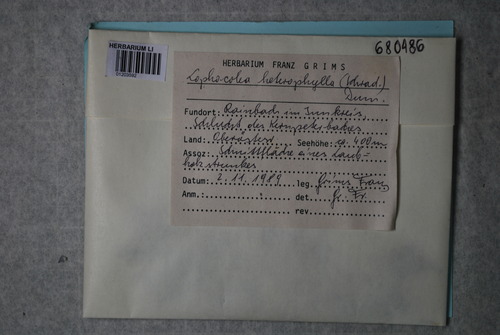 HERBARIUM LI
680486
HERBARIUM FRANZ GRIMS
Lophocolea heterophylla (Schrad.)
Dum.
Fundort: Rainbach im Innkreis
Schlucht des Kenzederbaches
Land: Oberösterr. Seehöhe: ca. 400 m
Assoz: Schnittfläche eines Laub-
holzstrunkes
Datum: 2.11.1989 leg. Grims Franz
Anm.: det. Gr. Fr.
rev.